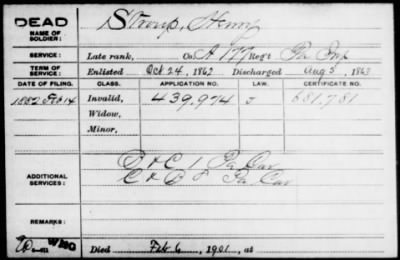 DEAD
NAME OF SOLDIER:
Stroup, Henry
SERVICE:
Late rank, Co. A 177 Reg't Pa Inf
TERM OF SERVICE:
Enlisted Oct 24, 1862 Discharged Aug 5, 1863
DATE OF FILING. CLASS. APPLICATION NO. LAW. CERTIFICATE NO.
1882 Feb 14 Invalid, 439,974 681,781
Widow,
Minor,
ADDITIONAL SERVICES:
D & C 1 Pa Cav
C & D 2 Pa Cav
REMARKS:
Died Feb 6, 1901, at